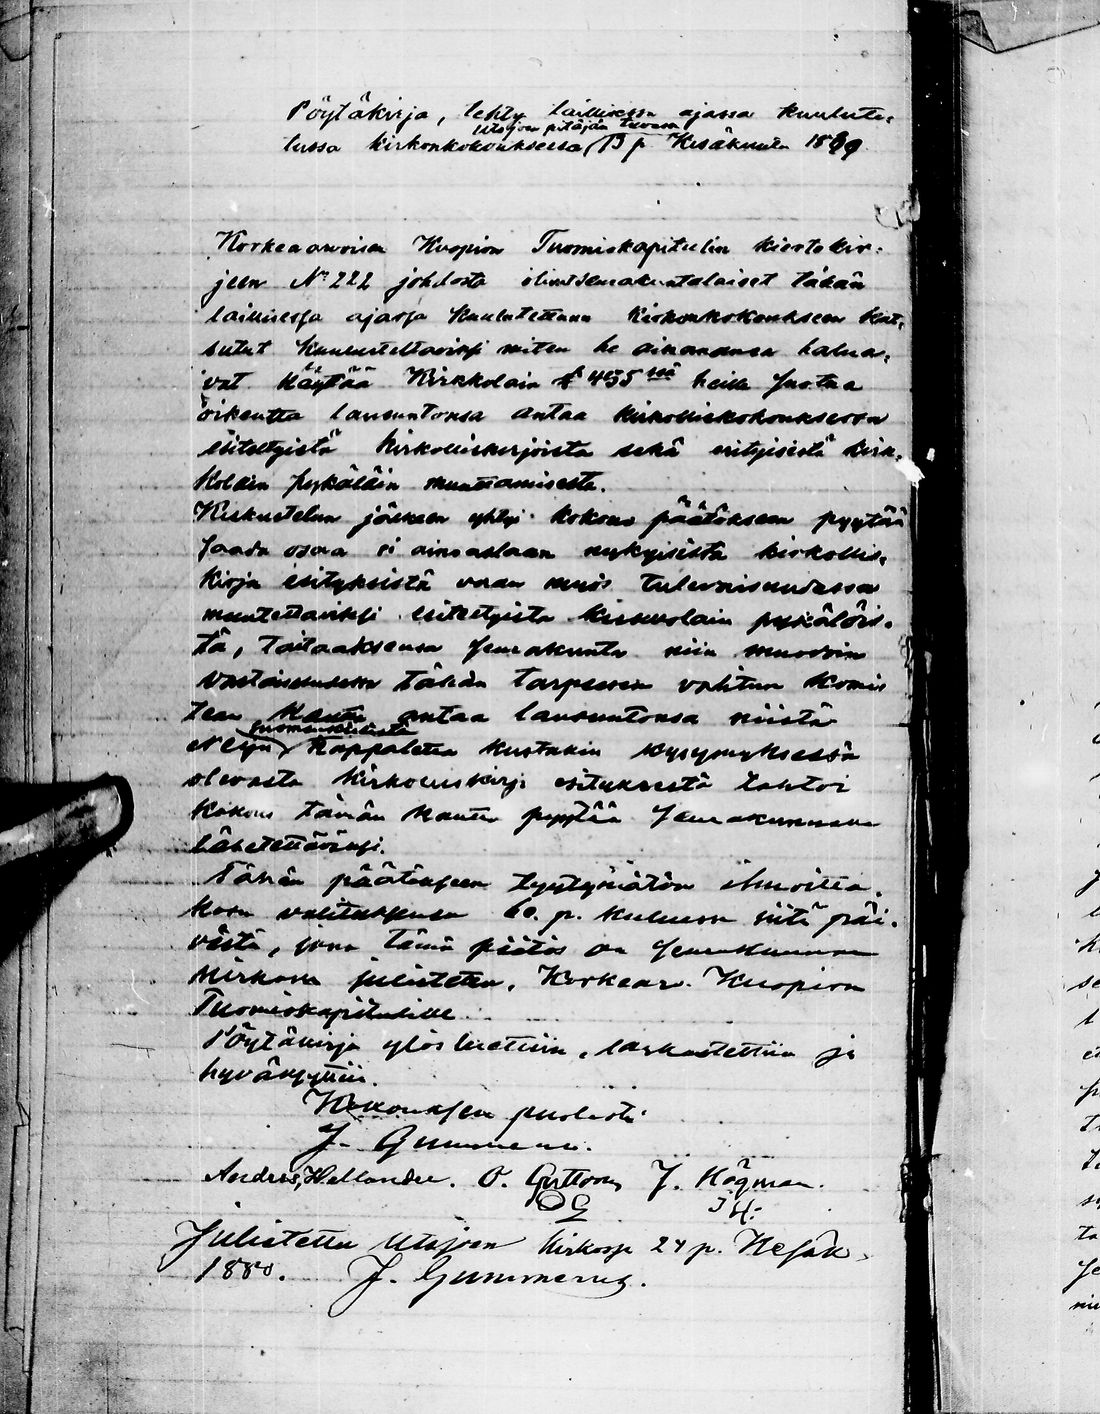 Pöytäkirja, tehty laillisessa ajassa kuulute-
tussa kirkonkokouksessa Utsjoen pitäjän tuvassa 13 p Kesäkuuta 18
Korkeaarvoisen Kuopion Tuomiokapitulin kiertokir-
jeen No 222 johdosta olivat seurakuntalaiset tähän
laillisessa ajassa kuulutettuun kirkonkokoukseen kut-
sutut kuulusteltaviksi miten he ainoansa halua-
vat käyttää Kirkkolain § 455 ssä heille suotua
oikeutta lausuntonsa antaa kirkolliskokouksessa
esitetyistä kirkolliskirjoista sekä erityisistä kirk-
kolain pykäläin muuttamisesta.
Keskustelun jälkeen yhtyi kokous päätökseen pyytää
saada osaa ei ainoastaan nykyisistä kirkollis-
kirja esityksistä vaan myös tulevaisuudessa
muutettaviksi esitetyistä kirkkolain pykälöis-
tä, taitaaksensa seurakunta niin muodoin
vastaisuudessa tähän tarpeesen valitun komi-
tean kautta antaa lausuntonsa niistä
Neljä suomenkielistä kappaletta kustakin kysymyksessä
olevasta kirkolliskirja esityksestä tahtoi
kokous tämän kautta pyytää seurakunnalle
lähetettäväksi.
Tähän päätökseen tyytymätön ilmoitta-
koon valituksensa 60. p. kuluessa siitä päi-
västä, jona tämä päätös on seurakunnan
kirkossa julistettu, Korkeaar. Kuopion
Tuomiokapitulille
Pöytäkirja ylös luettiin, tarkastettiin ja
hyväksyttiin.
Kokouksen puolesta
J. Gummerus.
Andres Hellander. O. Guttorm J. Högman.
OG JH:
Julistettu Utsjoen kirkossa 24 p. Kesäk.
1880. J. Gummerus.